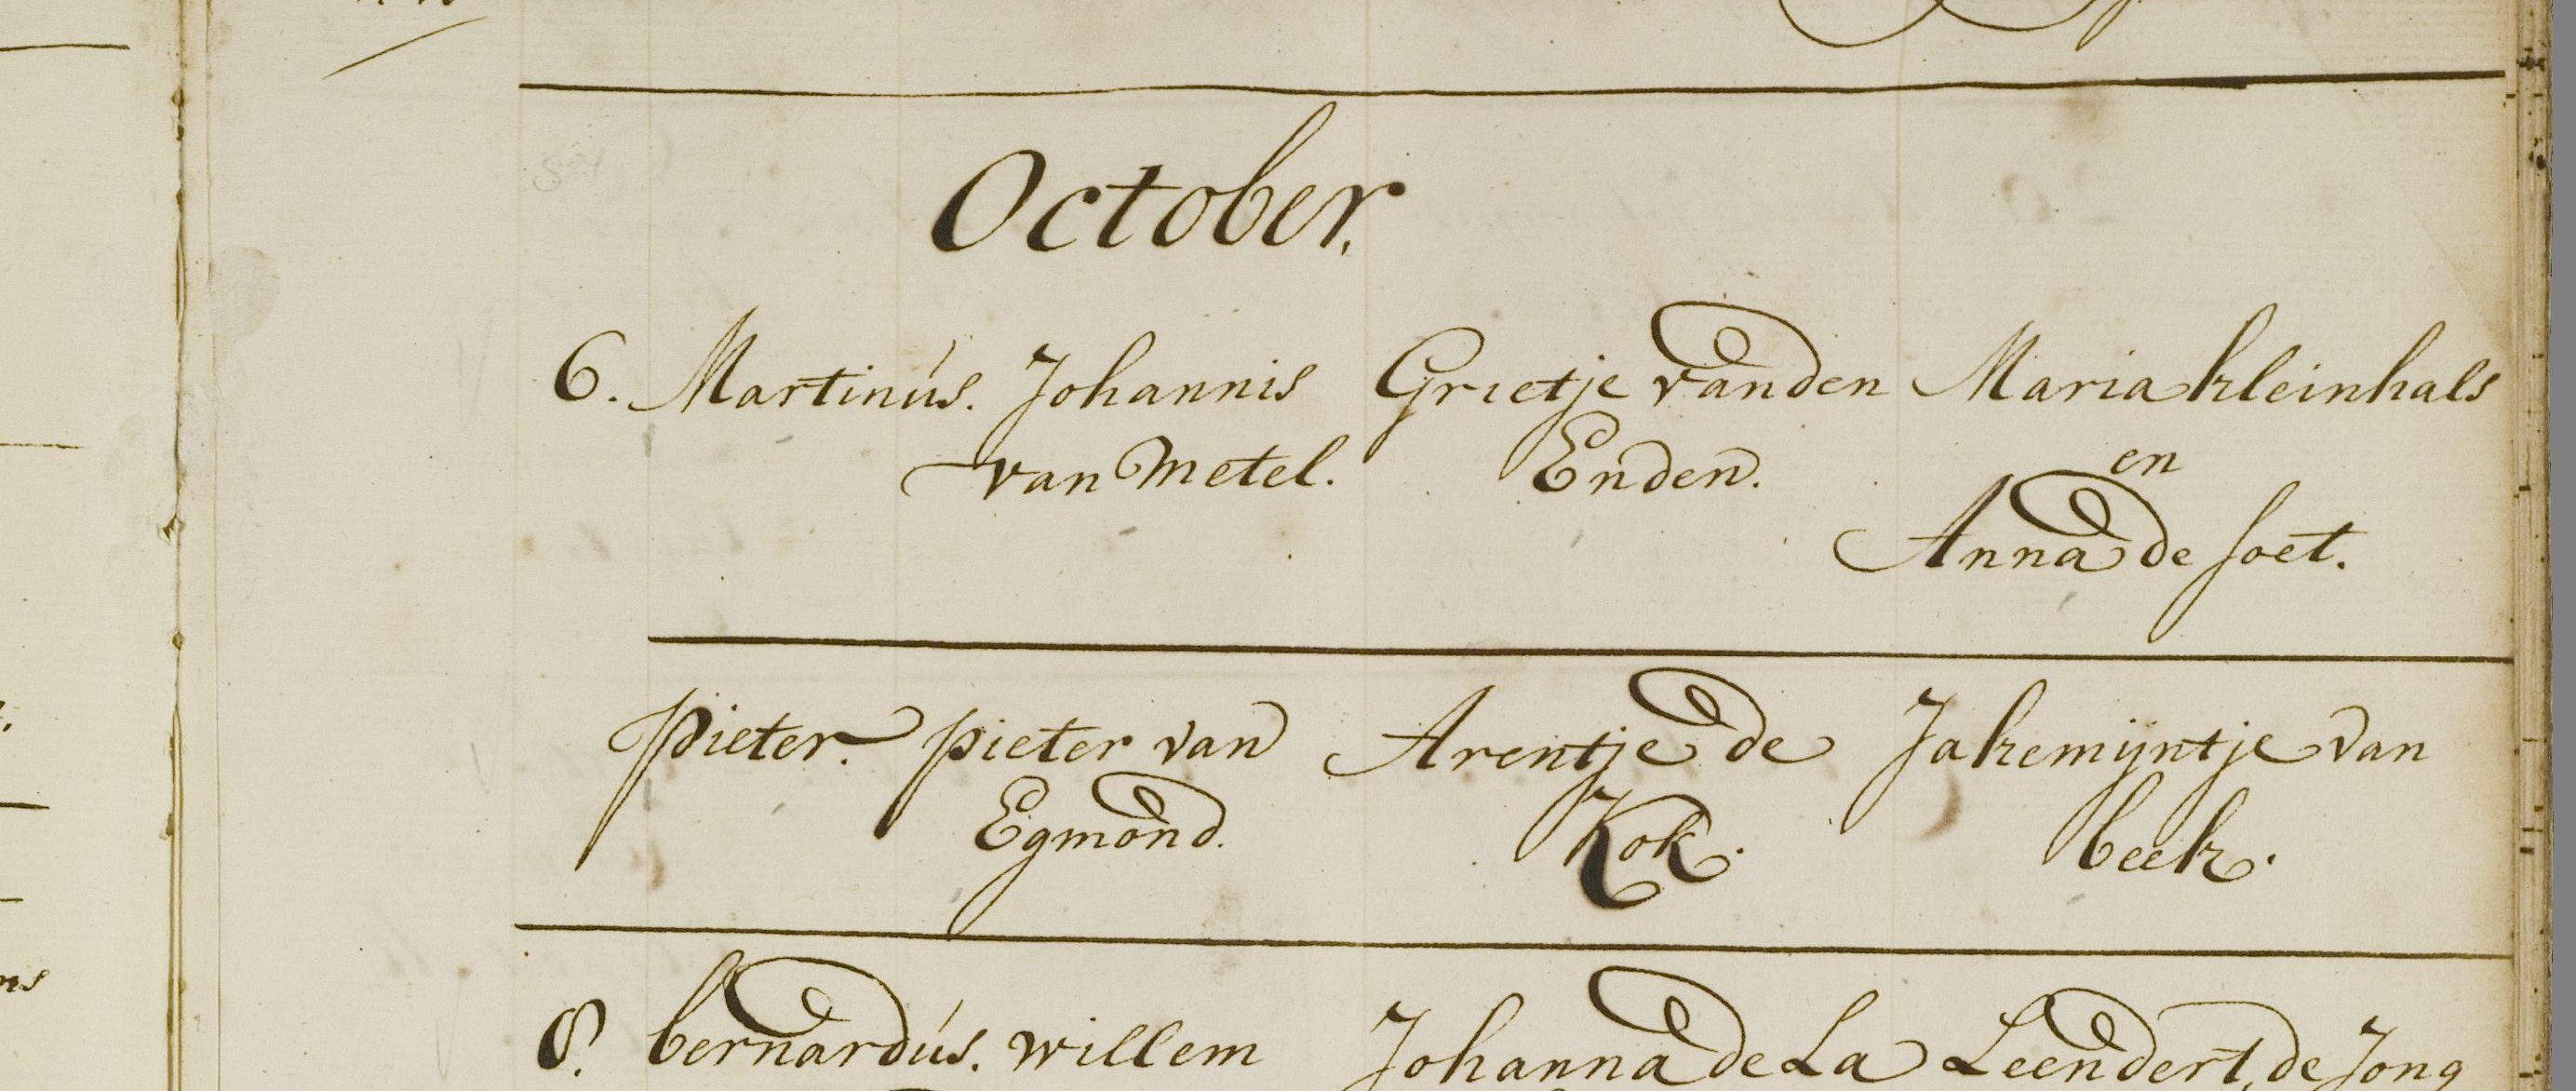 October.
6. Martinús. Johannis Grietje van den Maria kleinhals
van Metel. Enden. en
Anna de soet.
Pieter. pieter van Arentje de Jakemijntje van
Egmond. Kok. beek.
8. bernardús. willem Johanna de La Leendert de Jong